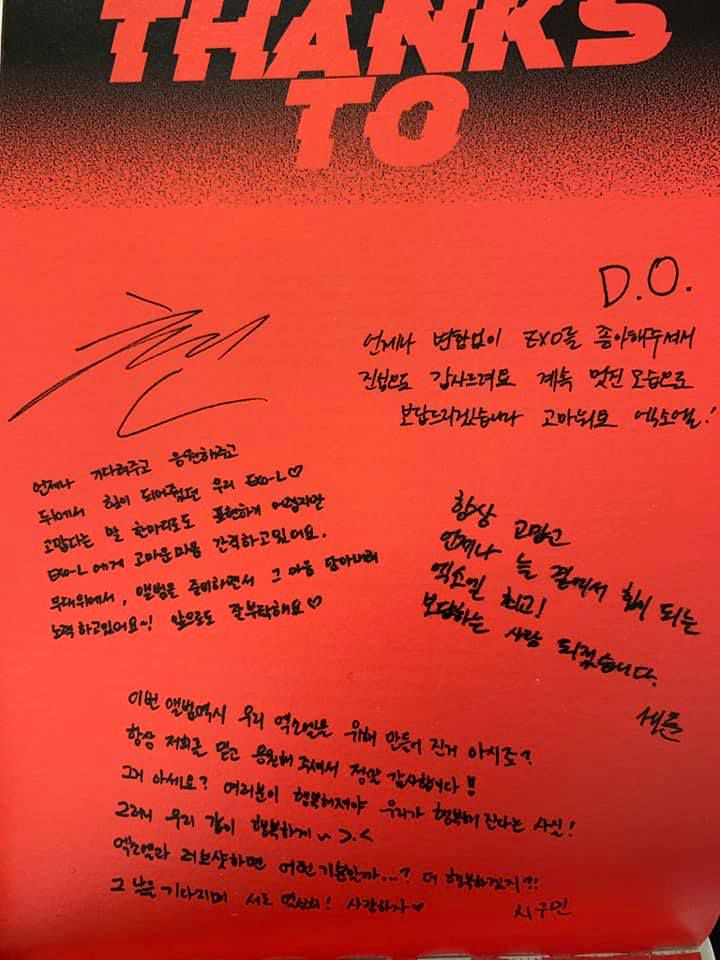 THANKS
TO
D.O.
언제나 변함없이 EXO를 좋아해주셔서
진심으로 감사드려요 계속 멋진 모습으로
보답드리겠습니다 고마워요 엑소엘!
첸
언제나 기다려주고 응원해주고
뒤에서 힘이 되어줬던 우리 EXO-L♡
고맙다는 말 한마디로도 표현하게 어렵지만
EXO-L에게 고마운마음 간직하고있어요.
무대위에서, 앨범을 준비하면서 그 마음 담아내려
노력하고있어요~! 앞으로도 잘부탁해요♡
항상 고맙고
언제나 늘 곁에서 힘이 되는
엑소엘 최고!
보답하는 사람 되겠습니다.
세훈
이번 앨범역시 우리 엑소엘을 위해 만들어 진거 아시죠?
항상 저희를 믿고 응원해 주셔서 정말 감사합니다!!
그거 아세요? 여러분이 행복해져야 우리가 행복해 진다는 사실!
그러니 우리 같이 행복하게~ >.<
엑소엘과 러브샷하면 어떤 기분일까...? 더 행복하겠지?!
그 날을 기다리며 서로 사랑하자♥
시우민